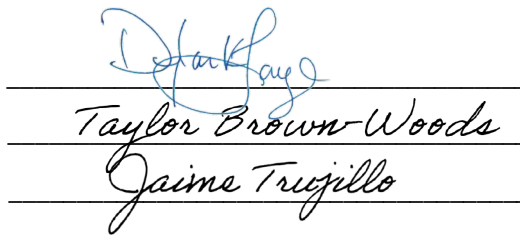 Taylor Brown-Woods
Jaime Trujillo